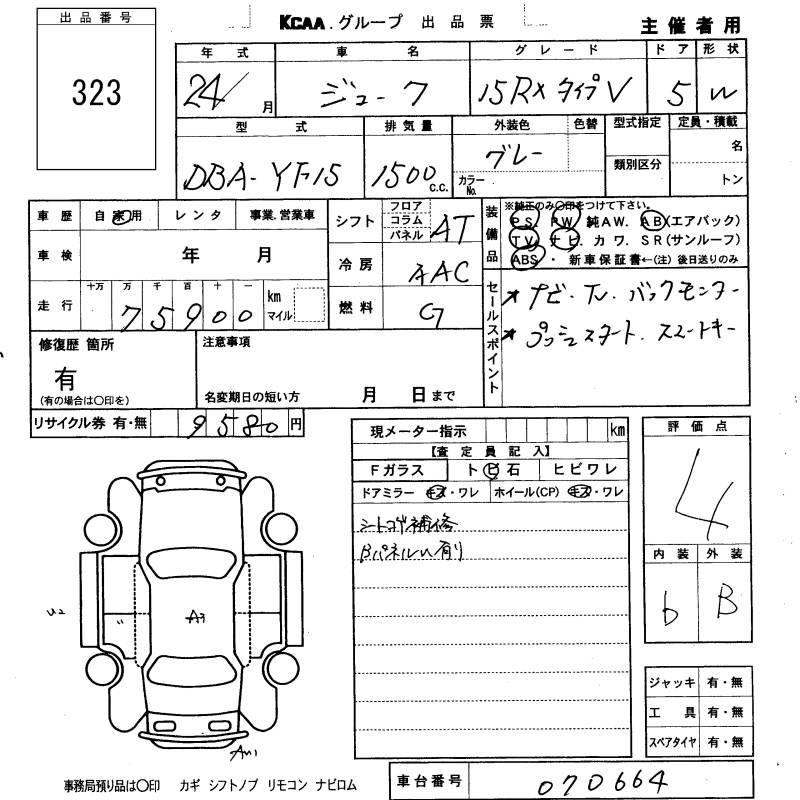 出品番号
323
KCAA.グループ 出品票
主催者用
年式 車名 グレード ドア 形状
24/ 月 ジューク 15RX タイプV 5 W
型式 排気量 外装色 色替 型式指定 定員・積載
DBA-YF15 1500 c.c. グレー カラーNo. 類別区分 名
トン
車歴 自家用 レンタ 事業.営業車
シフト フロア コラム パネル AT
装備品 ※純正のみ○印をつけて下さい。
PS. PW. 純AW. AB(エアバック)
TV. ナビ. カワ. SR(サンルーフ)
ABS・ 新車保証書←(注)後日送りのみ
車検 年 月
冷房 AAC
走行 十万 万 千 百 十 一
75900 km マイル
燃料 G
セールスポイント
★ナビ. TV. バックモニター
★プッシュスタート. スマートキー
修復歴 箇所
有
(有の場合は○印を)
注意事項
名変期日の短い方 月 日まで
リサイクル券 有・無 9580 円
現メーター指示 km
【査定員記入】
Fガラス トビ石 ヒビワレ
ドアミラー キズ・ワレ ホイール(CP) キズ・ワレ
シートコゲ補修
Bパネルu有り
評価点
4
内装 外装
b B
U2
A3
ジャッキ 有・無
工具 有・無
スペアタイヤ 有・無
事務局預り品は○印 カギ シフトノブ リモコン ナビロム
車台番号 070664